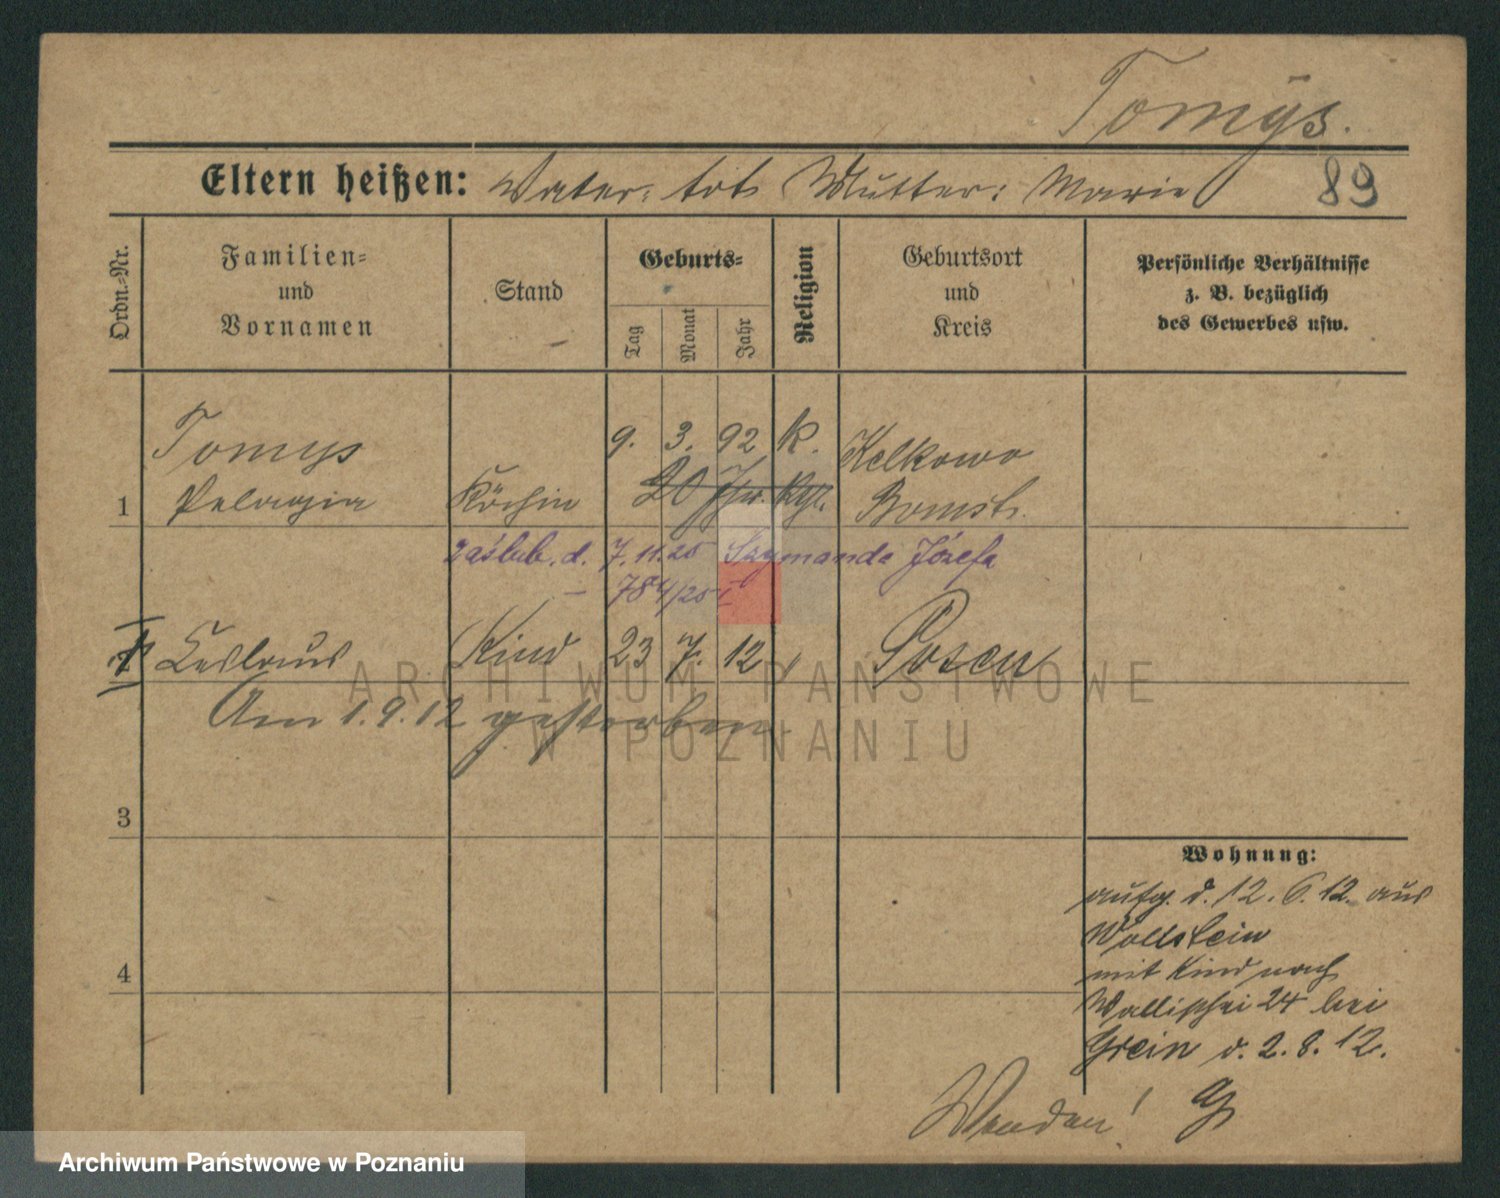 Tomÿs.
Eltern heißen: Vater: tot Mutter: Marie 89
Ordn.-Nr.
Familien-
und
Vornamen
Stand
Geburts-
Tag
Monat
Jahr
Religion
Geburtsort
und
Kreis
Persönliche Verhältnisse
z. B. bezüglich
des Gewerbes usw.
Tomys 9. 3. 92 k. Kelkowo
1 Pelagia Köchin 20 Bomst.
zaślub. d. 7.11.25 Józefa
— 784/25 I
Ceslaus Kind 23 7. 12 Posen
Am 1.9.12 gestorben
3
4
Wohnung:
aufg. d. 12. 6. 12. aus
Wollstein
mit Kind nach
Wallischei 24 bei
Grein d. 2. 8. 12.
Wenden!
ARCHIWUM PAŃSTWOWE
W POZNANIU
Archiwum Państwowe w Poznaniu